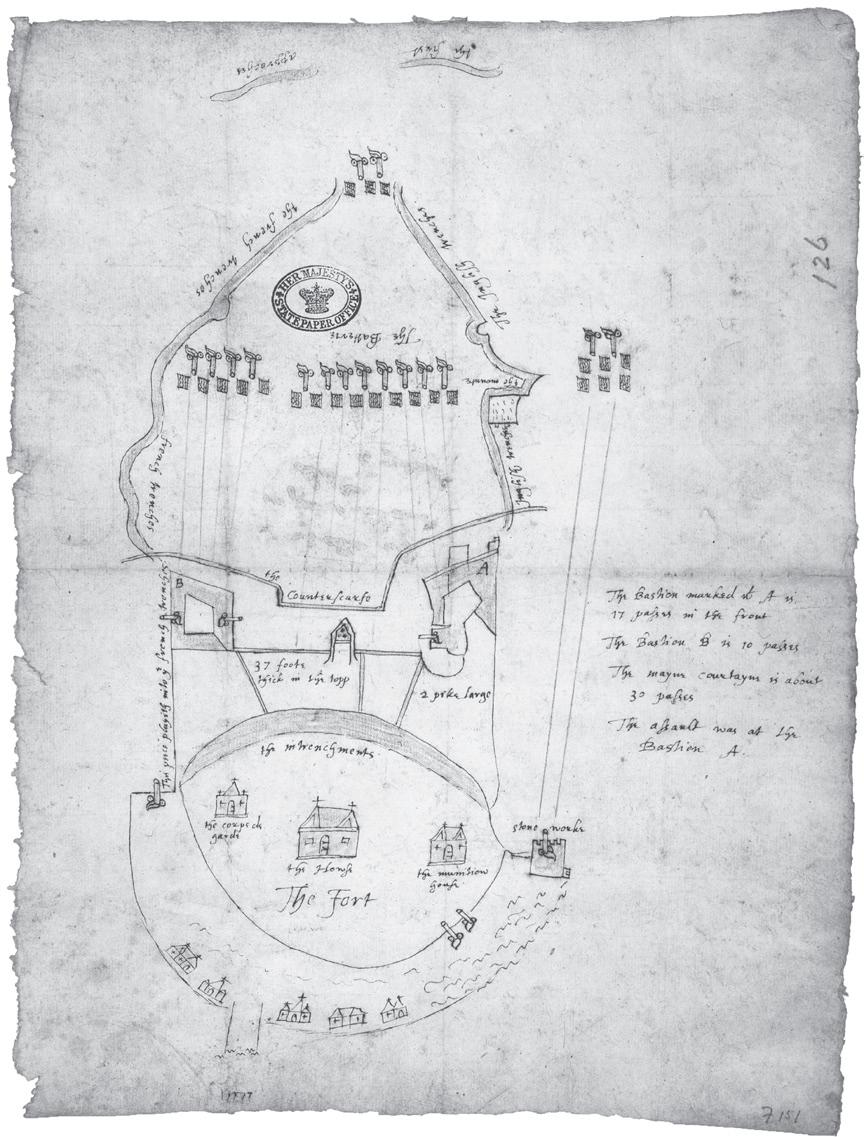 approches
the first
126
the french trenches
The Inglish trenches
HER MAJESTY'S
STATE PAPER OFFICE
The Batterie
the mounte
french trenches
Inglish trenches
B
the
Counterscarfe
A
The Bastion marked wt A is
17 passes in the front
The Bastion B is 10 passes
The mayne courtayne is about
30 passes
The assault was at the
Bastion A.
37 foote
thick in the topp
2 pike large
the intrenchments
the corps de
garde
the House
the munition
house
stone worke
The Fort
7151